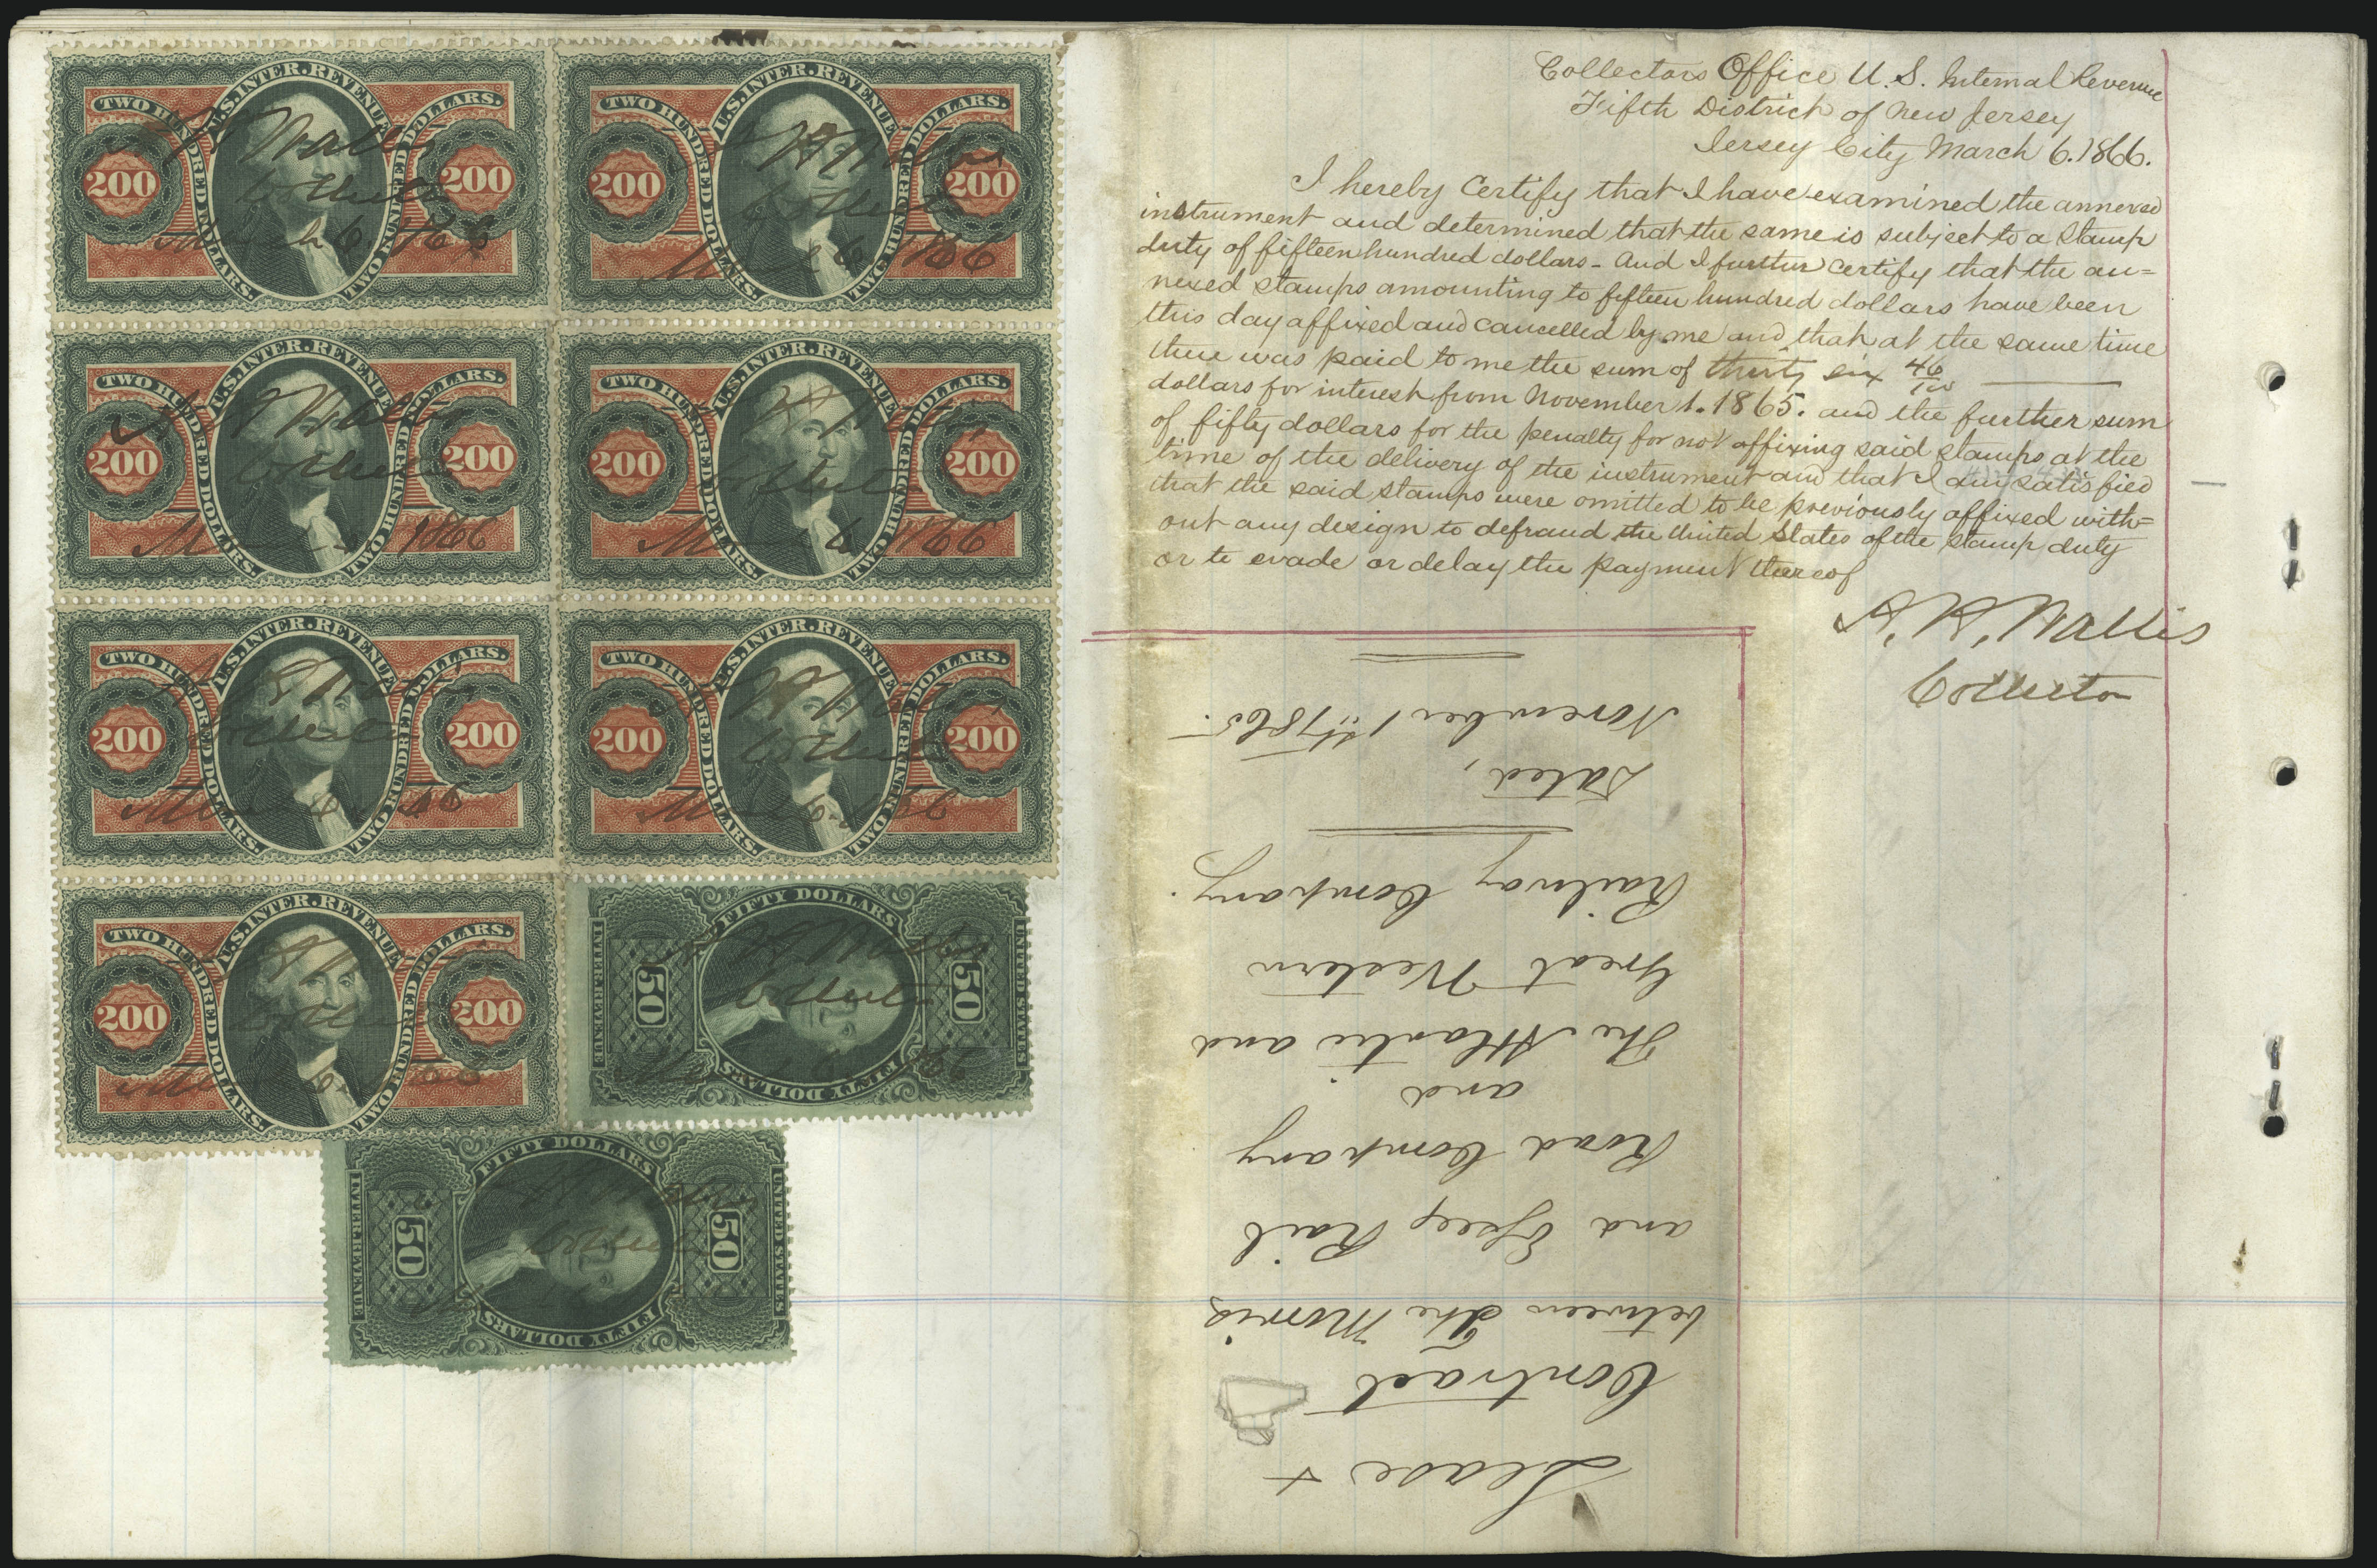 U.S. INTER. REVENUE
TWO HUNDRED DOLLARS.
TWO HUNDRED DOLLARS.
200 200
Wallis
Collector
March 6. 1866
U.S. INTER. REVENUE
TWO HUNDRED DOLLARS.
TWO HUNDRED DOLLARS.
200 200
H Wallis
Collector
March 6 1866
U.S. INTER. REVENUE
TWO HUNDRED DOLLARS.
TWO HUNDRED DOLLARS.
200 200
Wallis
Collector
1866
U.S. INTER. REVENUE
TWO HUNDRED DOLLARS.
TWO HUNDRED DOLLARS.
200 200
H Wallis
Collector
March 6 1866
U.S. INTER. REVENUE
TWO HUNDRED DOLLARS.
TWO HUNDRED DOLLARS.
200 200
Collector
U.S. INTER. REVENUE
TWO HUNDRED DOLLARS.
TWO HUNDRED DOLLARS.
200 200
H Wallis
Collector
U.S. INTER. REVENUE
TWO HUNDRED DOLLARS.
TWO HUNDRED DOLLARS.
200 200
FIFTY DOLLARS
INTER. REVENUE
50 50
UNITED STATES
FIFTY DOLLARS
Wallis
Collector
FIFTY DOLLARS
INTER. REVENUE
50 50
UNITED STATES
FIFTY DOLLARS
Collector
Collectors Office U. S. Internal Revenue
Fifth District of New Jersey
Jersey City March 6. 1866.
I hereby Certify that I have examined the annexed
instrument and determined that the same is subject to a Stamp
duty of fifteen hundred dollars - And I further certify that the an=
nexed stamps amounting to fifteen hundred dollars have been
this day affixed and cancelled by me and that at the same time
there was paid to me the sum of thirty six 46/100
dollars for interest from November 1. 1865. and the further sum
of fifty dollars for the penalty for not affixing said stamps at the
time of the delivery of the instrument and that I am satisfied
that the said stamps were omitted to be previously affixed with=
out any design to defraud the United States of the stamp duty
or to evade or delay the payment thereof
H. Wallis
Collector
Lease +
Contract
between The Morris
and Essex Rail
Road Company
and
The Atlantic and
Great Western
Railway Company.
Dated,
November 1st 1865.